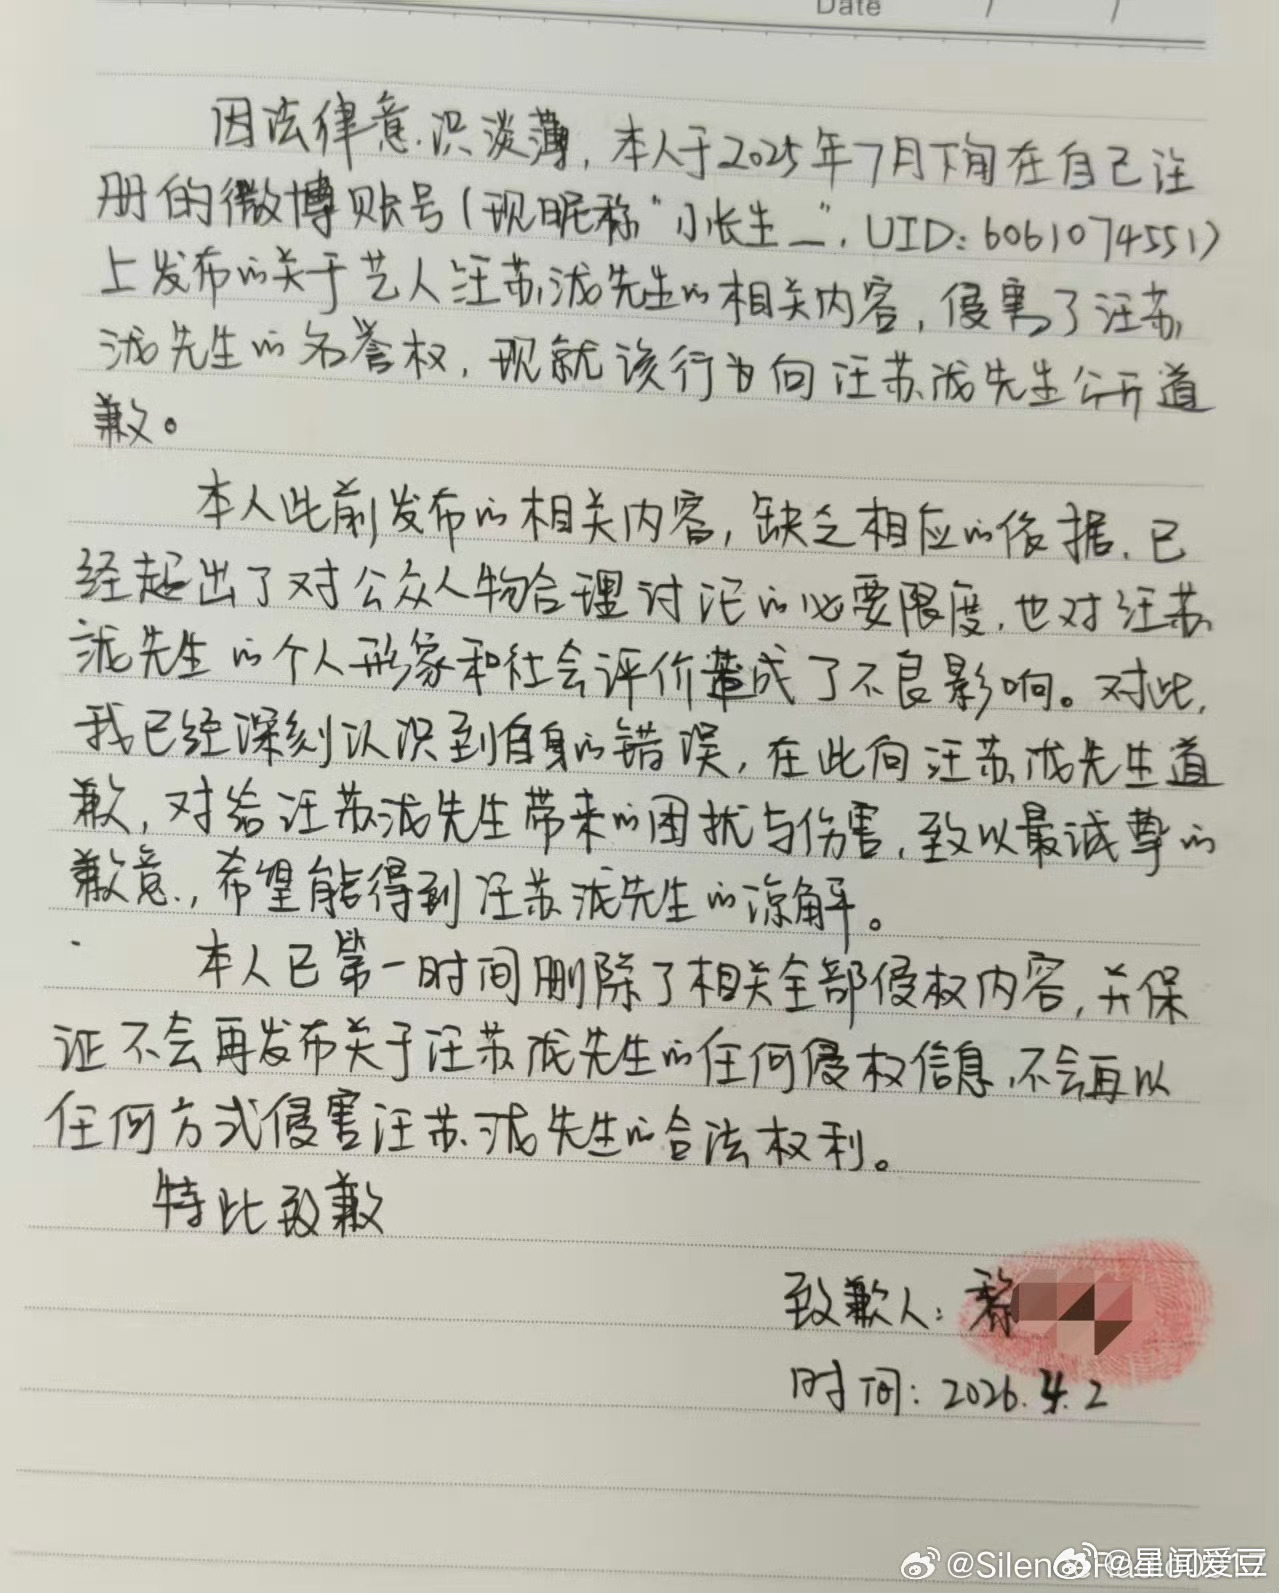 Date / /
因法律意识淡薄，本人于2025年7月下旬在自己注
册的微博账号（现昵称“小长生_”，UID：6061074551）
上发布的关于艺人汪苏泷先生的相关内容，侵害了汪苏
泷先生的名誉权，现就该行为向汪苏泷先生公开道
歉。
本人此前发布的相关内容，缺乏相应的依据，已
经超出了对公众人物合理讨论的必要限度，也对汪苏
泷先生的个人形象和社会评价造成了不良影响。对此，
我已经深刻认识到自身的错误，在此向汪苏泷先生道
歉，对给汪苏泷先生带来的困扰与伤害，致以最诚挚的
歉意，希望能得到汪苏泷先生的谅解。
本人已第一时间删除了相关全部侵权内容，并保
证不会再发布关于汪苏泷先生的任何侵权信息，不会再以
任何方式侵害汪苏泷先生的合法权利。
特此致歉
致歉人：
时间：2026.4.2
@星闻爱豆